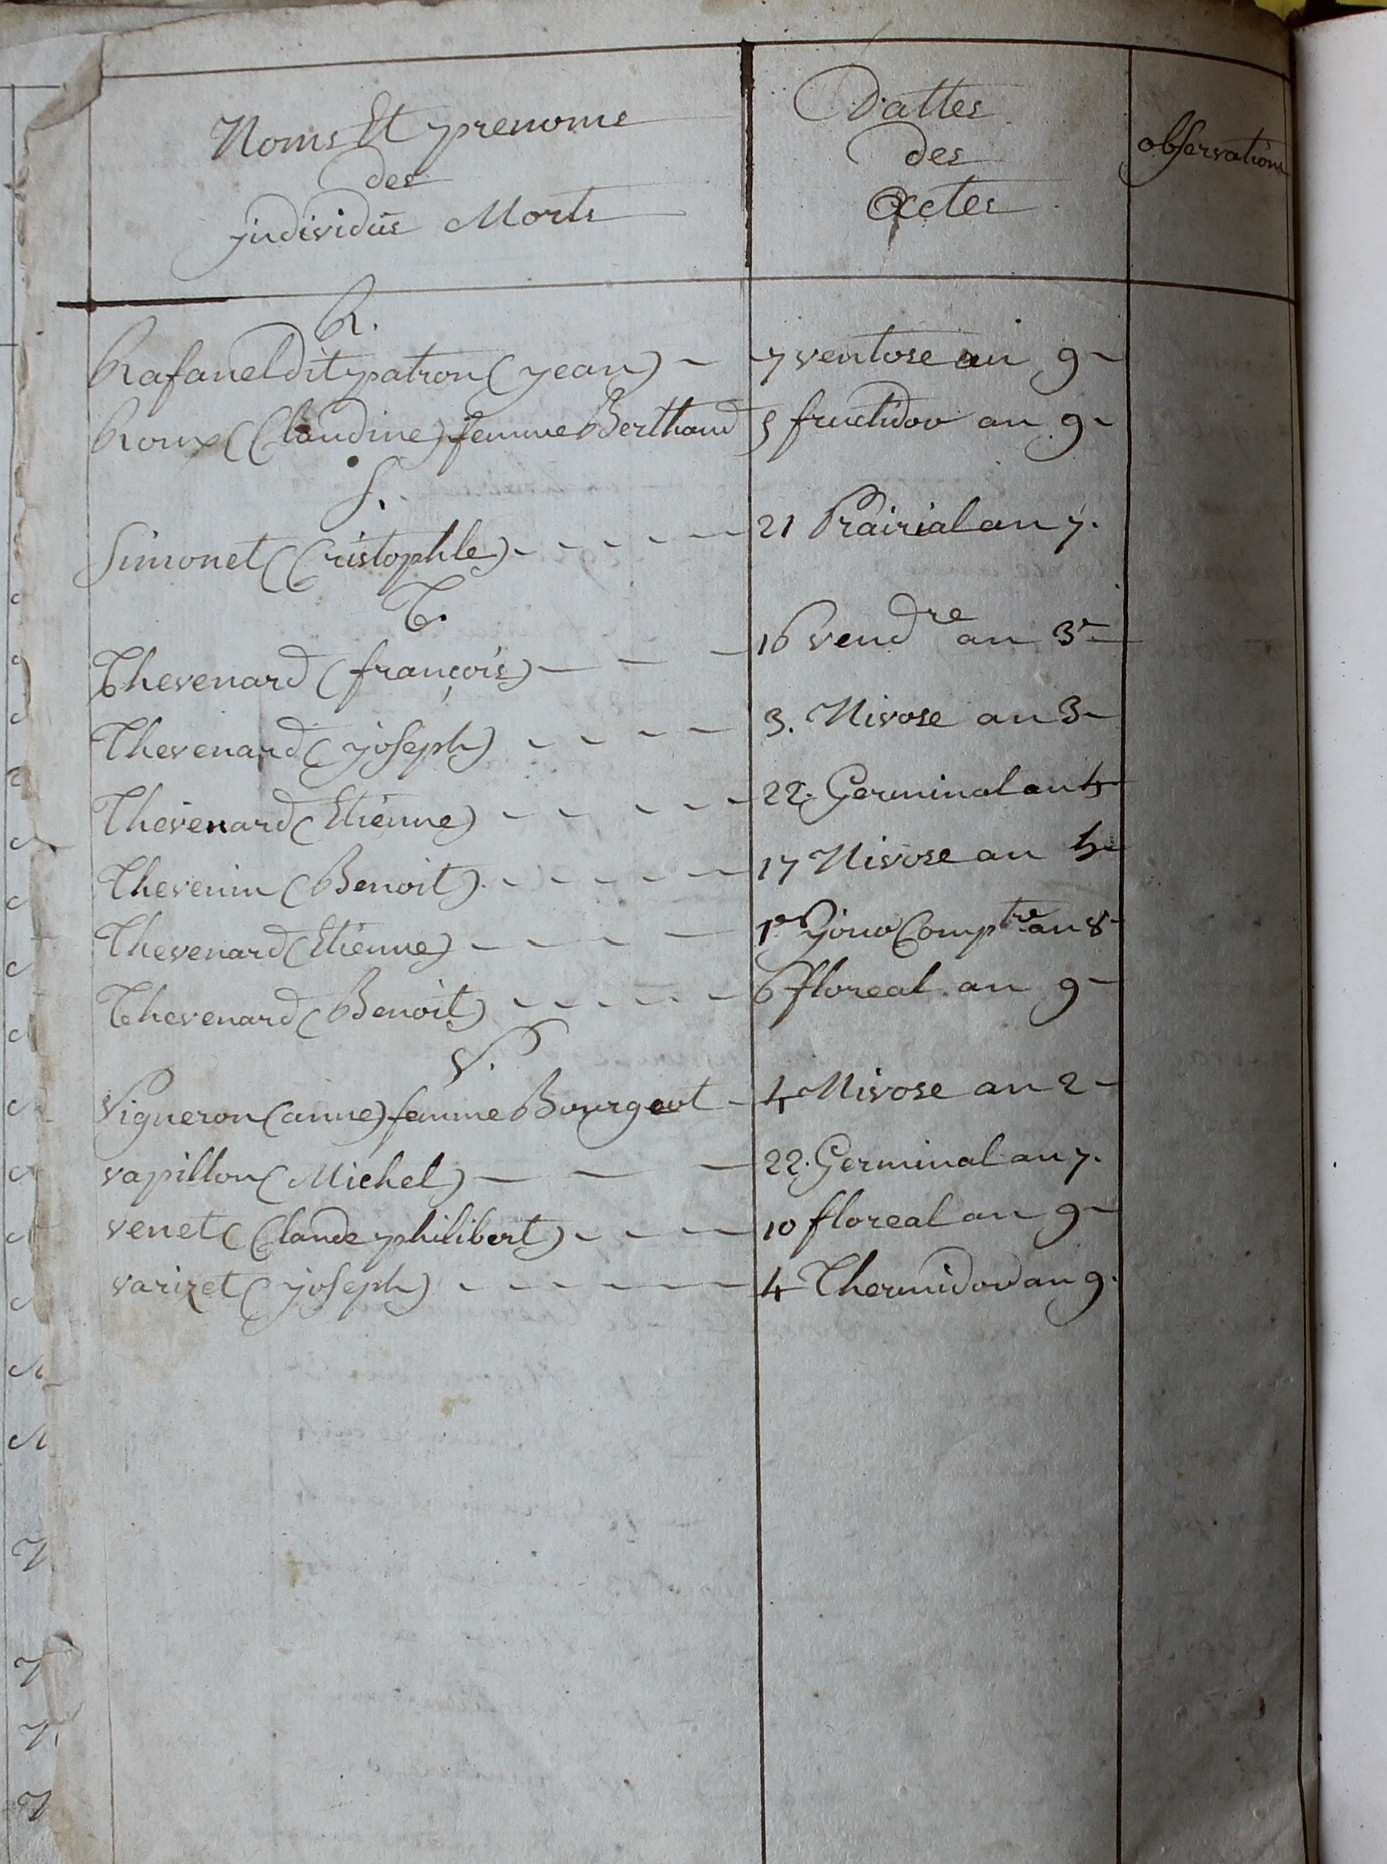 Noms Et prenoms
des
jndividus Morts
Dattes
des
Actes
observations
R.
Rafanel dit patron (jean) 7 ventose an 9
Roux (Claudine) femme Berthaud 5 fructidor an 9
S.
Simonet (Cristophle) 21 Prairial an 7.
T.
Thevenard (françois) 16 vend.re an 3e
Thevenard (joseph) 3. Nivose an 3
Thevenard (Etienne) 22. Germinal an 4
Thevenin (Benoit) 17 Nivose an 5
Thevenard (Etienne) 1er jour Compre an 8
Thevenard (Benoit) 6 floreal an 9
V.
Vigneron (anne) femme Bourgeot 4 Nivose an 2
vapillon (Michel) 22. Germinal an 7.
venet (Claude philibert) 10 floreal an 9
varizet (joseph) 4 Thermidor an 9.